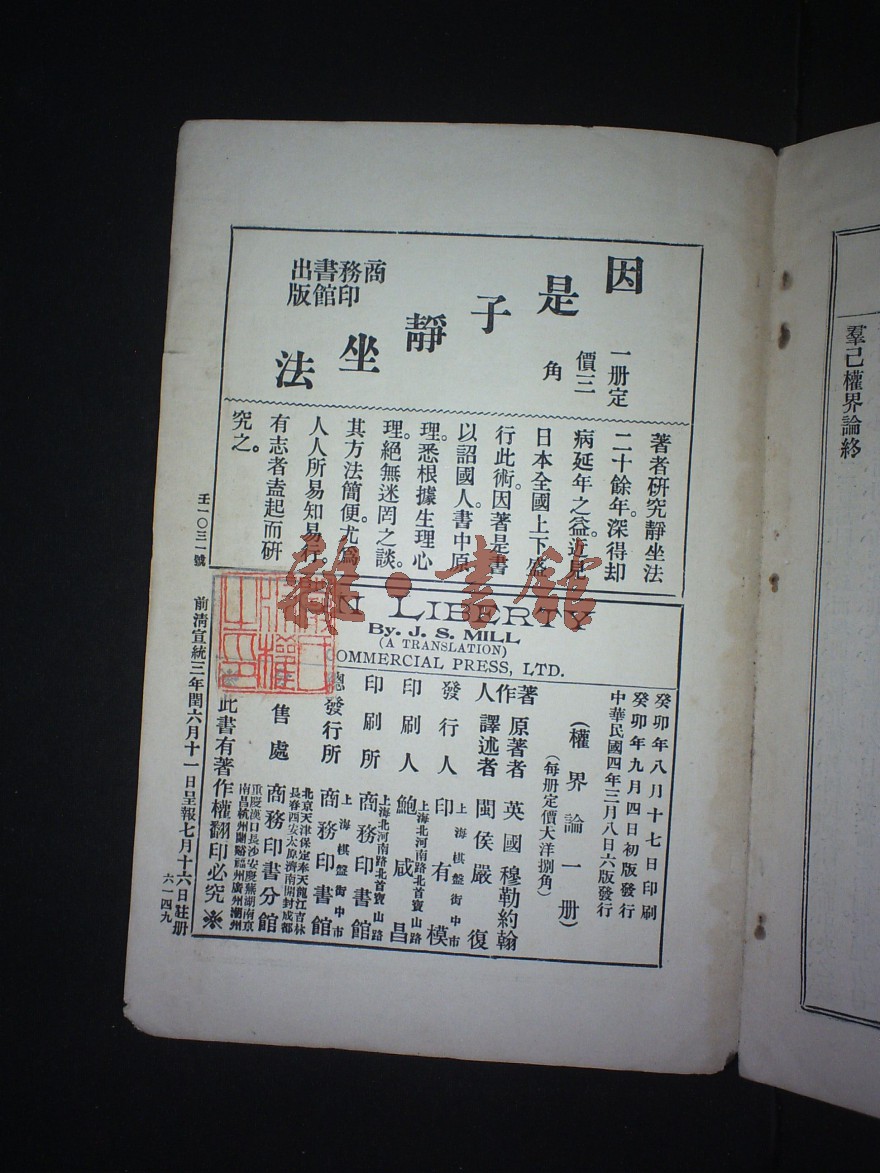 羣己權界論終
因是子靜坐法
一册定
價三
角
商務印書館出版
著者研究靜坐法
二十餘年。深得却
病延年之益。近見
日本全國上下盛
行此術。因著是書
以詔國人。書中原
理。悉根據生理心
理。絕無迷罔之談。
其方法簡便。尤爲
人人所易知易行。
有志者盍起而研
究之。
壬一〇三一號
雜·書館
ON LIBERTY
By. J. S. MILL
(A TRANSLATION)
COMMERCIAL PRESS, LTD.
癸卯年八月十七日印刷
癸卯年九月四日初版發行
中華民國四年三月八日六版發行
(權界論一册)
(每册定價大洋捌角)
著作人
原著者 英國穆勒約翰
譯述者 閩侯嚴復
發行人 印有模
上海棋盤街中市
印刷人 鮑咸昌
上海北河南路北首寶山路
印刷所 商務印書館
上海北河南路北首寶山路
總發行所 商務印書館
上海棋盤街中市
售處 商務印書分館
北京天津保定奉天龍江吉林
長春西安太原濟南開封成都
重慶漢口長沙安慶蕪湖南京
南昌杭州蘭谿福州廣州潮州
此書有著作權翻印必究※
前清宣統三年閏六月十一日呈報七月十六日註册
六一四九